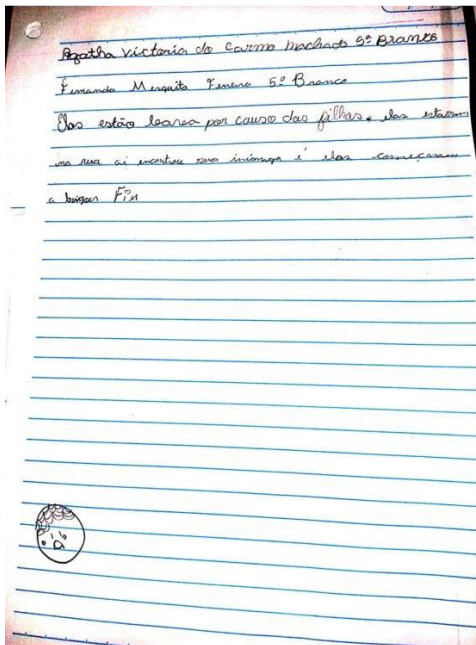 Agatha Victoria do Carmo Machado 5º Branco
Fernanda Mesquita 5º Branco
Elas estão por causo das filhas. elas estavam
na rua ai encontrou sua inimiga é elas começaram
a brigar Fim